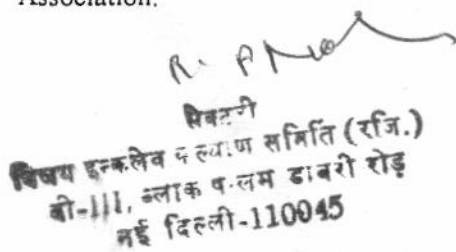 Association.
सैक्रटरी
विजय इन्कलेव कल्याण समिति (रजि.)
बी-III, ब्लाक पालम डाबरी रोड़
नई दिल्ली-110045